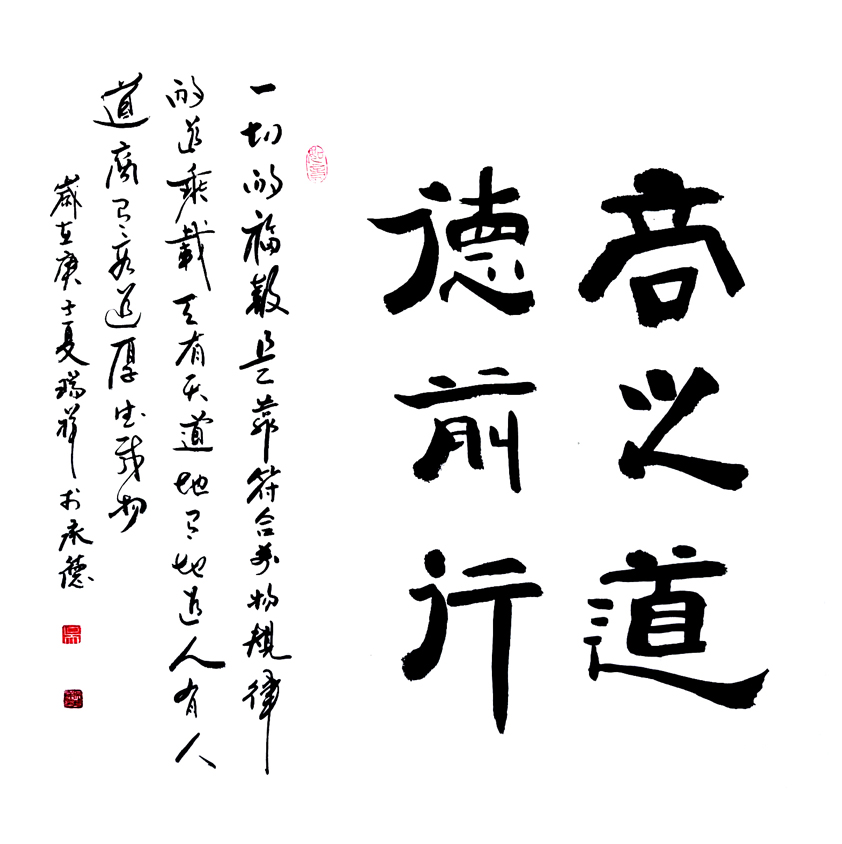 商之道
德前行
一切的福報是靠符合萬物規律
的道乘載天有天道地有地道人有人
道商有商道厚德載物
歲在庚子夏瑞祥於承德